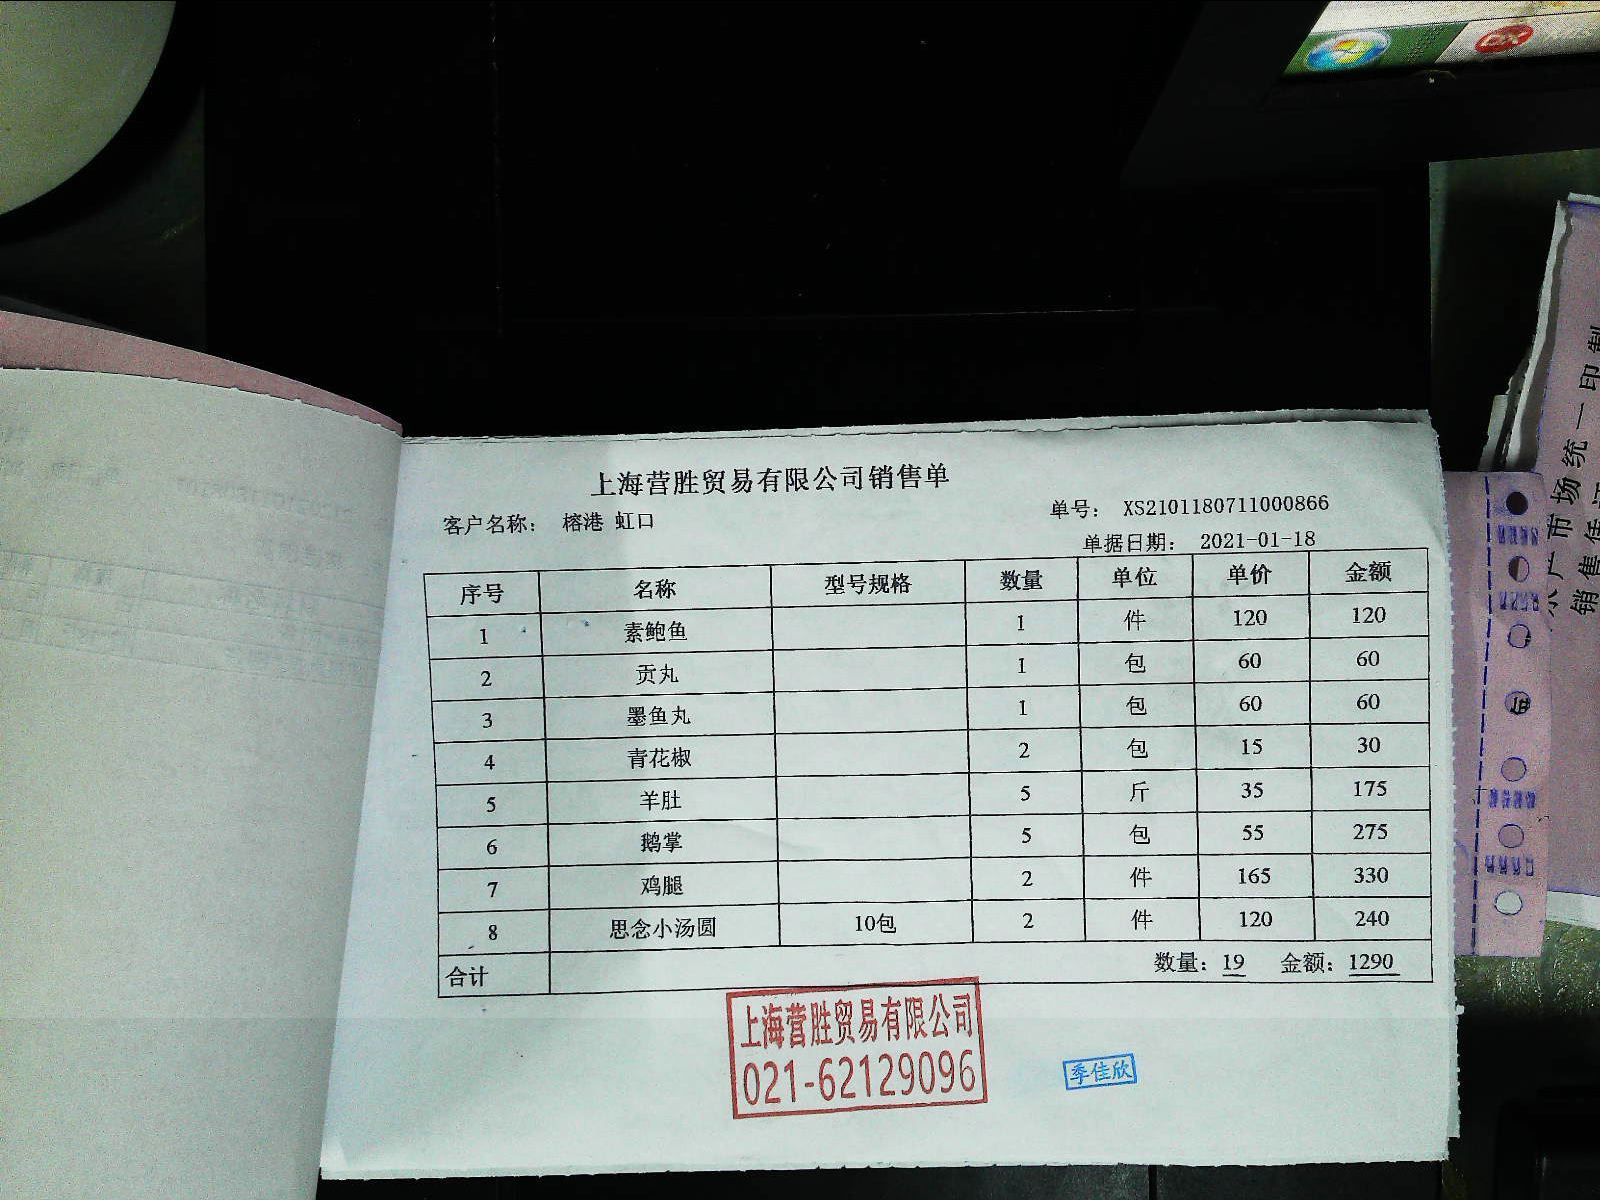 上海营胜贸易有限公司销售单
客户名称： 榕港 虹口 单号： XS2101180711000866
单据日期： 2021-01-18
序号 名称 型号规格 数量 单位 单价 金额
1 素鲍鱼 1 件 120 120
2 贡丸 1 包 60 60
3 墨鱼丸 1 包 60 60
4 青花椒 2 包 15 30
5 羊肚 5 斤 35 175
6 鹅掌 5 包 55 275
7 鸡腿 2 件 165 330
8 思念小汤圆 10包 2 件 120 240
合计 数量：19 金额：1290
上海营胜贸易有限公司
021-62129096
季佳欣
广市场统一印制
销售凭证